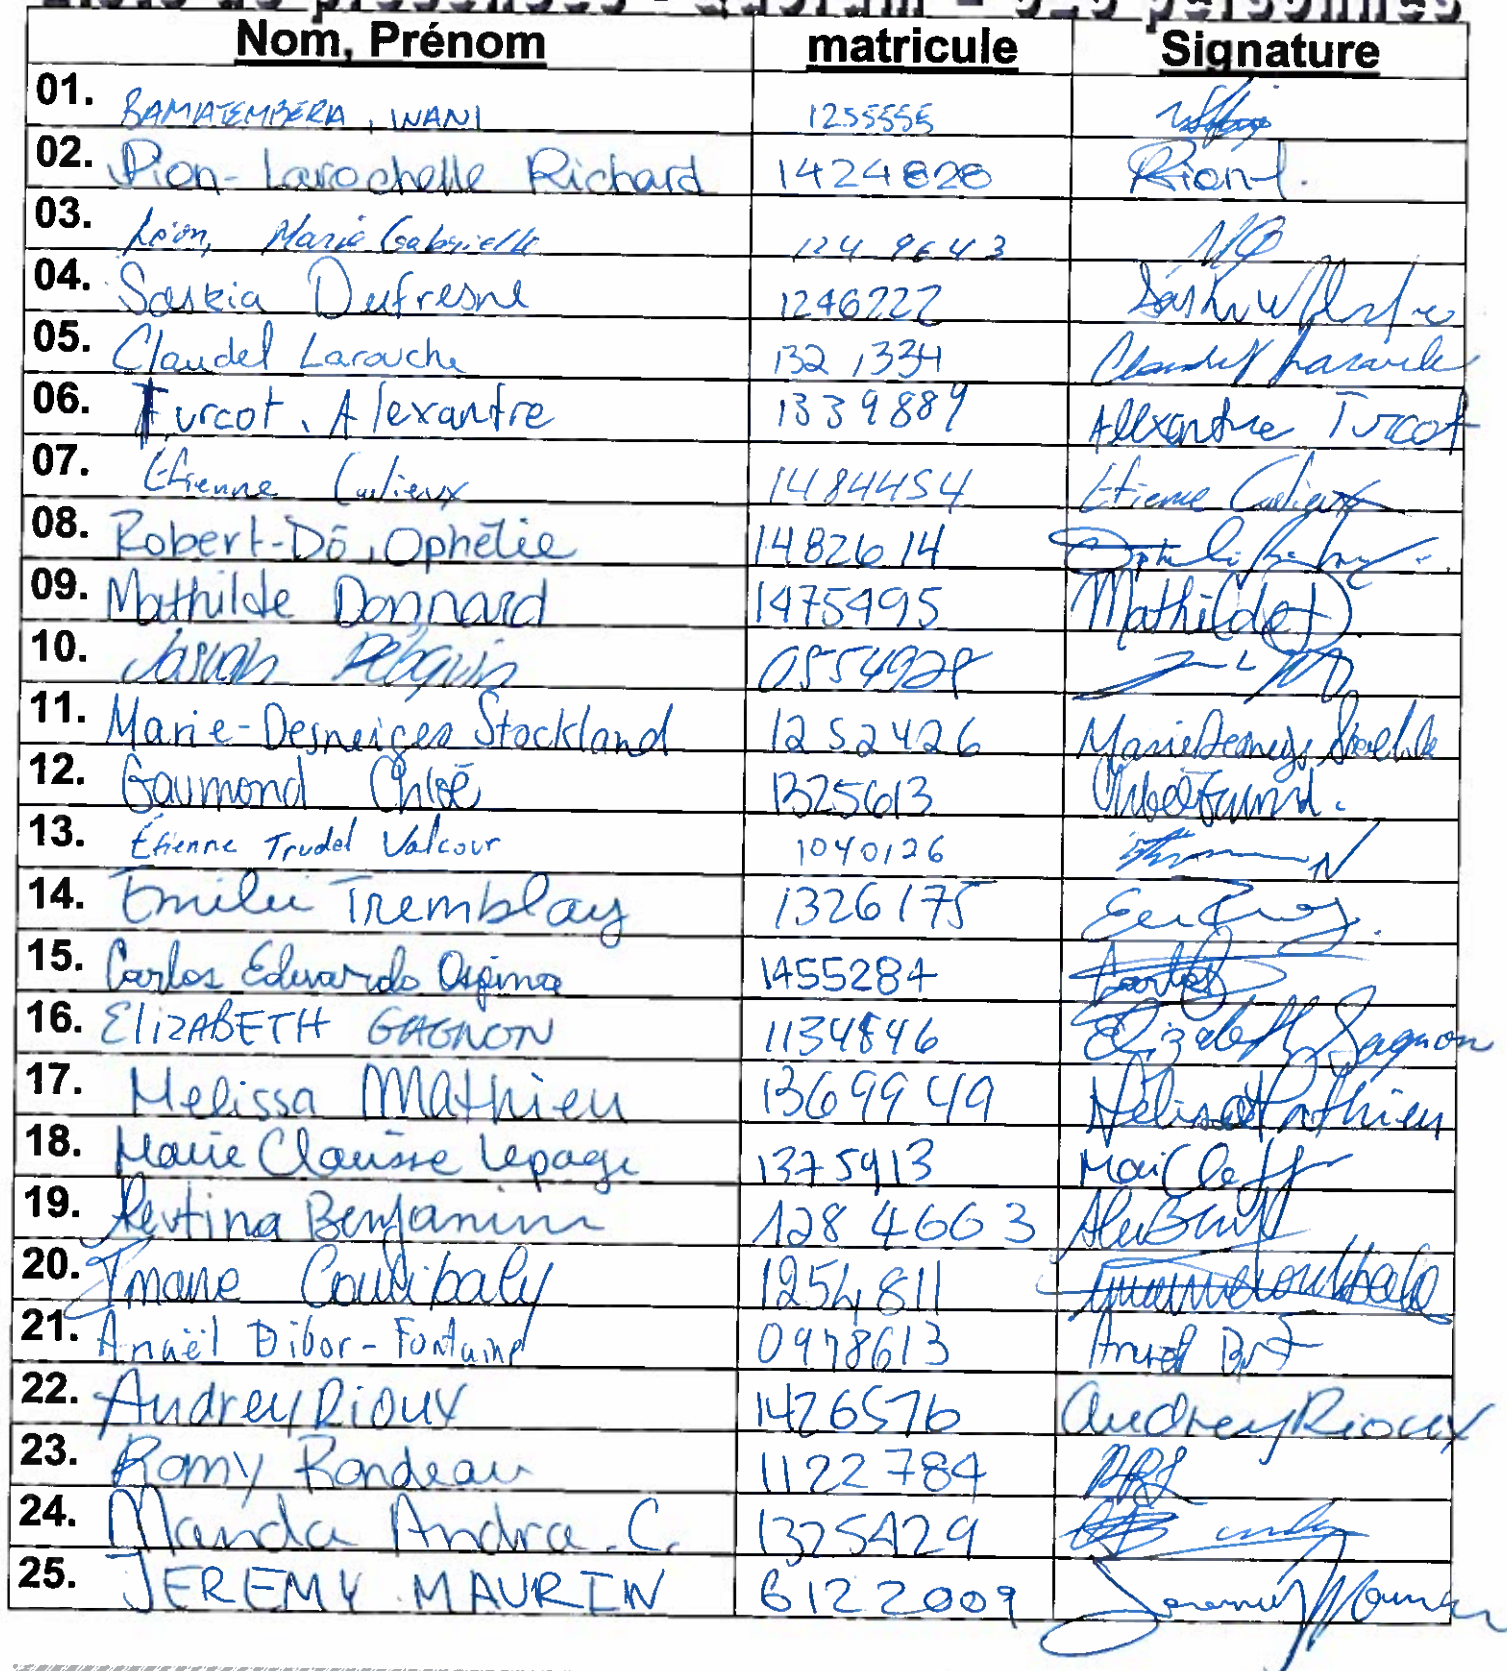 Liste de présences - Quorum - 525 personnes
Nom, Prénom matricule Signature
01. BAMATEMBERA, WANI 1255555
02. Pion-Larochelle Richard 1424828 Pion-L.
03. Léon, Marie Gabrielle 1249643 MG
04. Saskia Dufresne 1246222
05. Claudel Larouche 1321334 Claudel Larouche
06. Turcot, Alexandre 1339889 Alexandre Turcot
07. Étienne Cadieux 1484454 Étienne Cadieux
08. Robert-Dô, Ophélie 1482614
09. Mathilde Donnard 1475495 Mathilde D
10. 0554928
11. Marie-Desneiges Stockland 1252426
12. Gaumond Chloë 1325613
13. Étienne Trudel Valcour 1040126
14. Emilie Tremblay 1326175
15. Carlos Eduardo Ospina 1455284 Carlos
16. ElizABETH GAGNON 1134846 Elizabeth Gagnon
17. Melissa Mathieu 1369949 Mélissa Mathieu
18. Marie Clarisse Lepage 1375913
19. Benjamin 1284663
20. Imane Coulibaly 1254811 Imane Coulibaly
21. Anaël Dibor-Fontaine 0978613
22. Audrey Rioux 1426576 Audrey Rioux
23. Romy Rondeau 1122784
24. Manda Andra. C. 1325429
25. JEREMY MAURIN 6122009